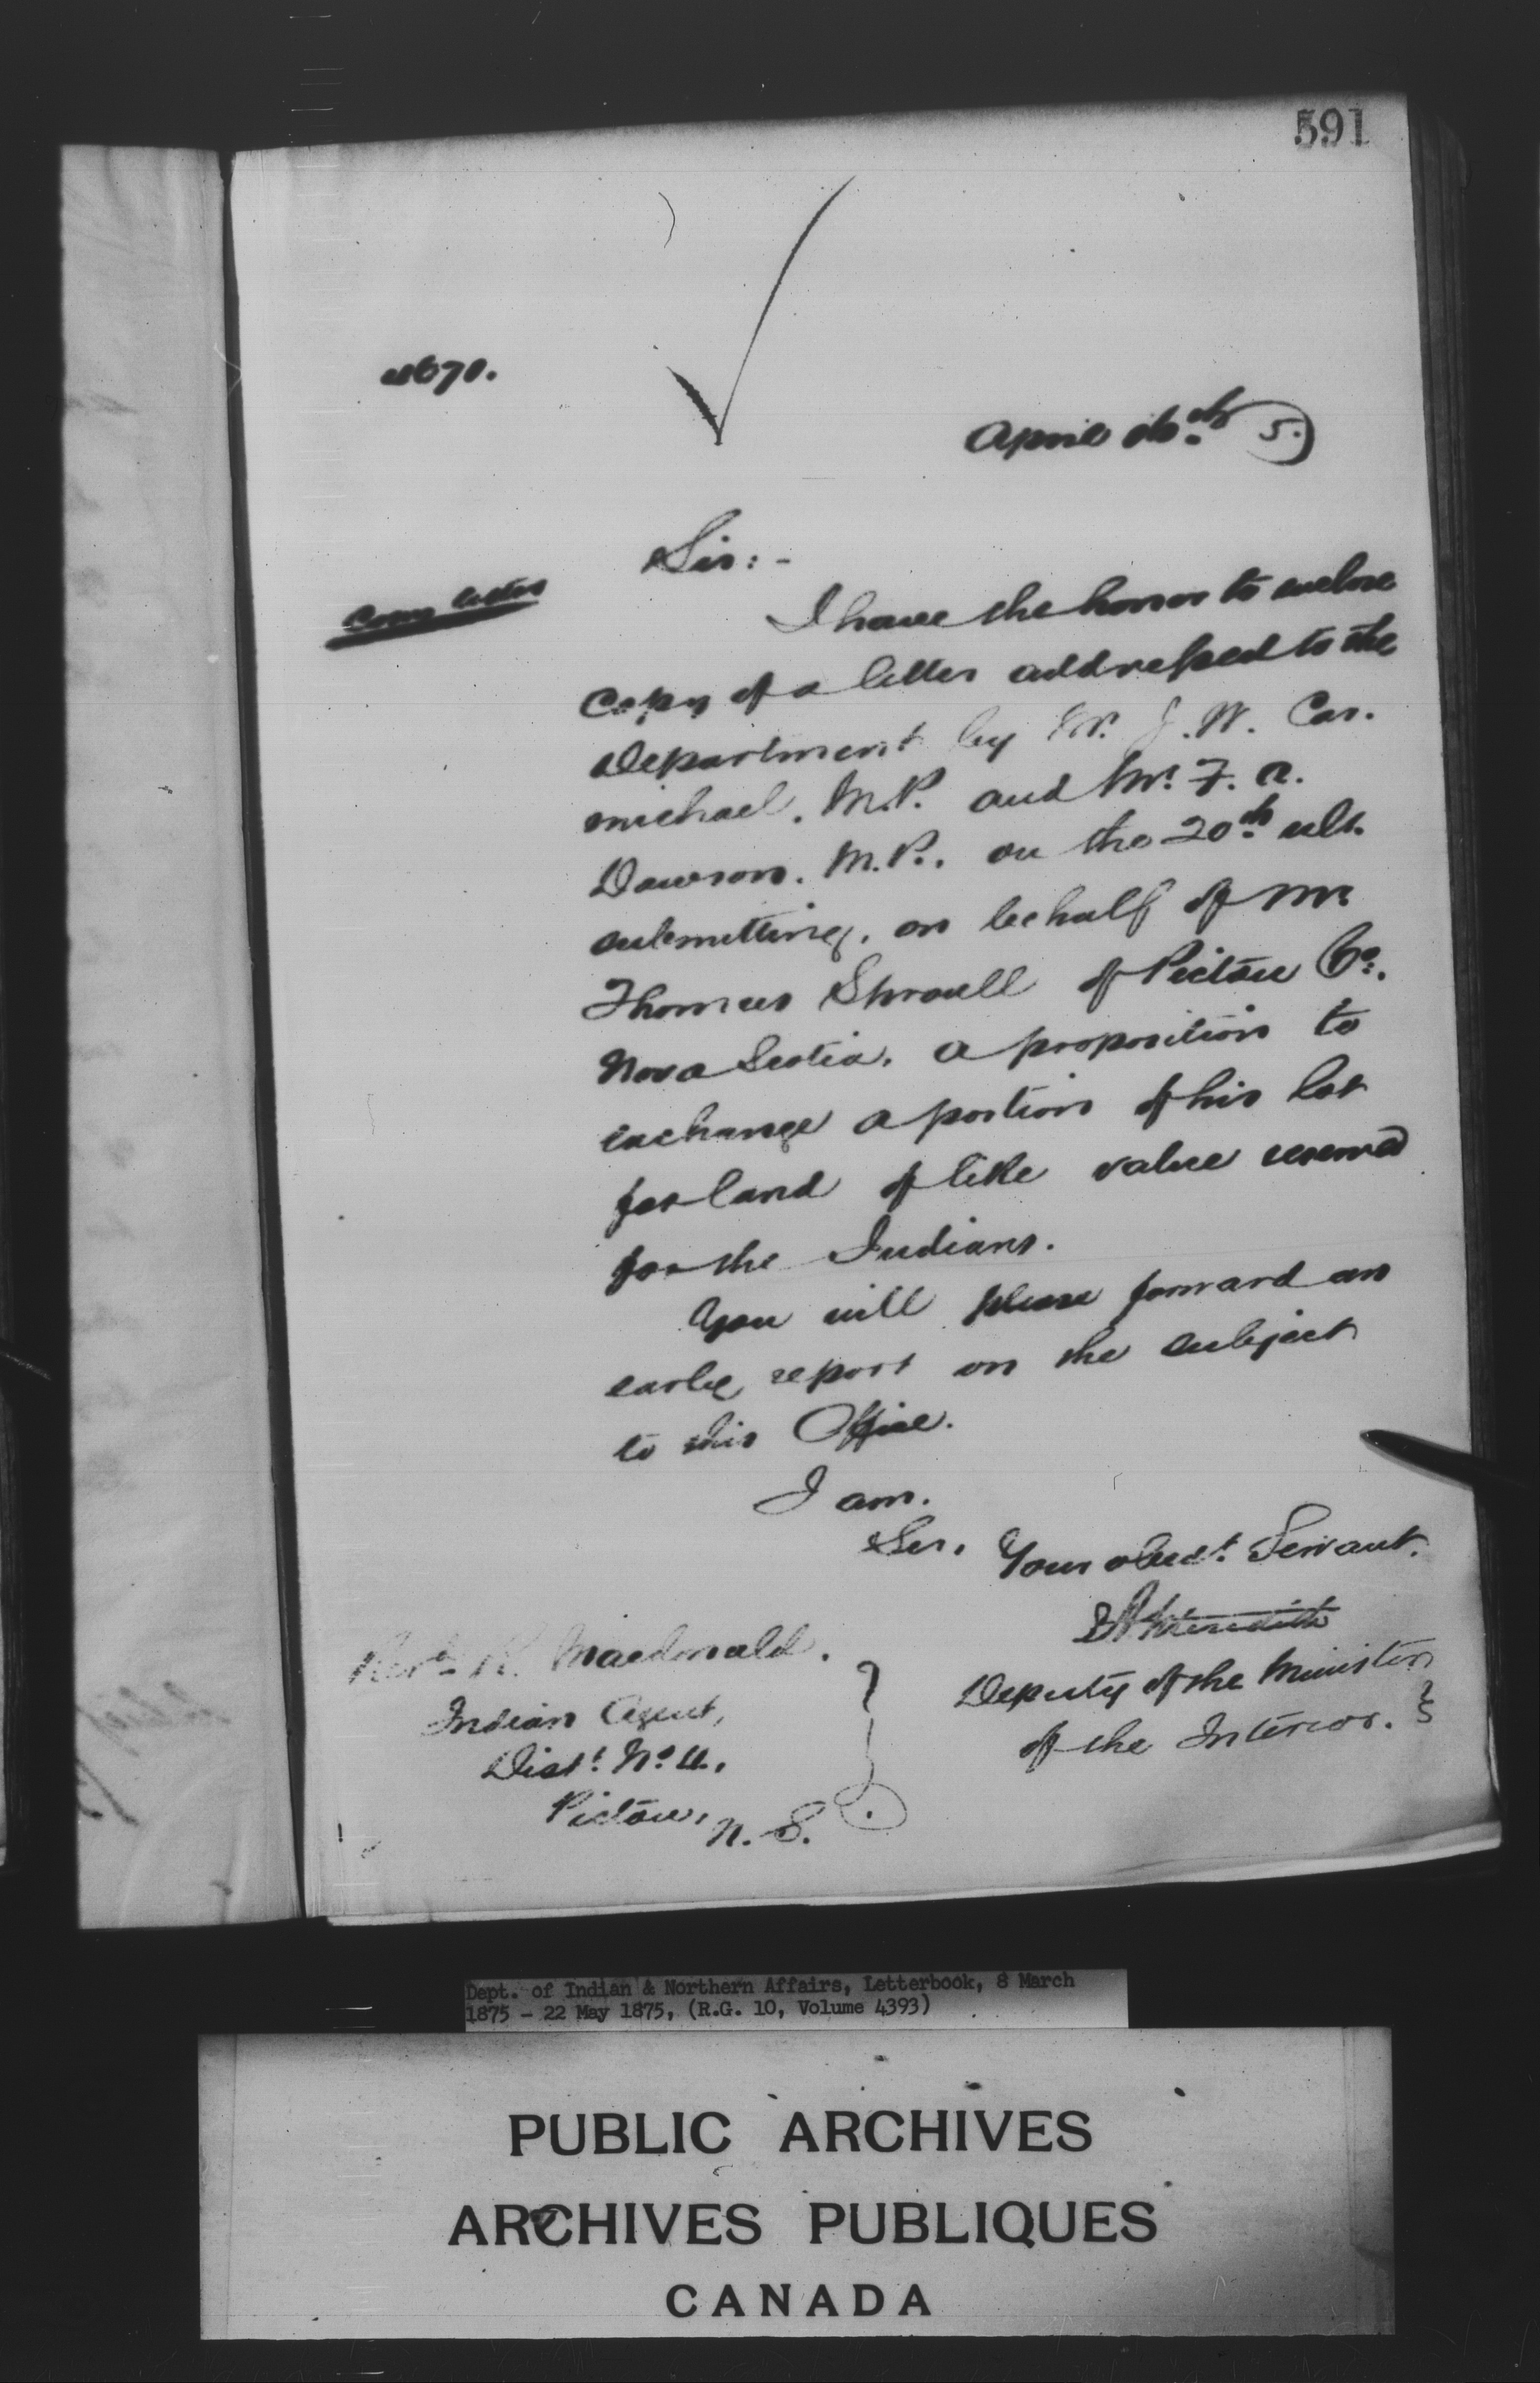 591
April 5.
Sir:-
Copy letter
I have the honor to enclose
Copy of a letter addressed to the
Department by Mr. J. W. Car.
michael, M.P. and Mr. F. A.
Dawson. M.P., on the 20th ult.
submitting, on behalf of Mr
Thomas of Pictou Co.,
Nova Scotia, a proposition to
exchange a portion of his lot
for land of like value reserved
for the Indians.
You will please forward an
early report on the subject
to this Office.
I am.
Sir, Your obedt. Servant.
E A Meredith
Revd. R. Macdonald.
Deputy of the Minister
Indian Agent,
of the Interior.
Dist. No.
Pictou, N. S.
Dept. of Indian & Northern Affairs, Letterbook, 8 March
1875 - 22 May 1875, (R.G. 10, Volume 4393)
PUBLIC ARCHIVES
ARCHIVES PUBLIQUES
CANADA